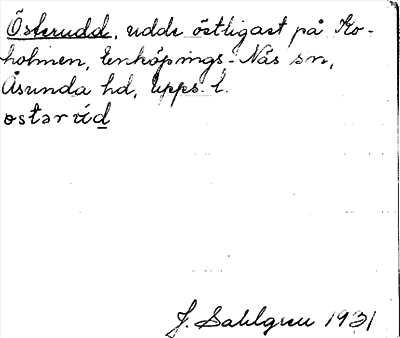 Österudd, udde östligast på Ko-
holmen, Enköpings-Näs sn,
Åsunda hd, Upps. l.
östarúd
J. Sahlgren 1931